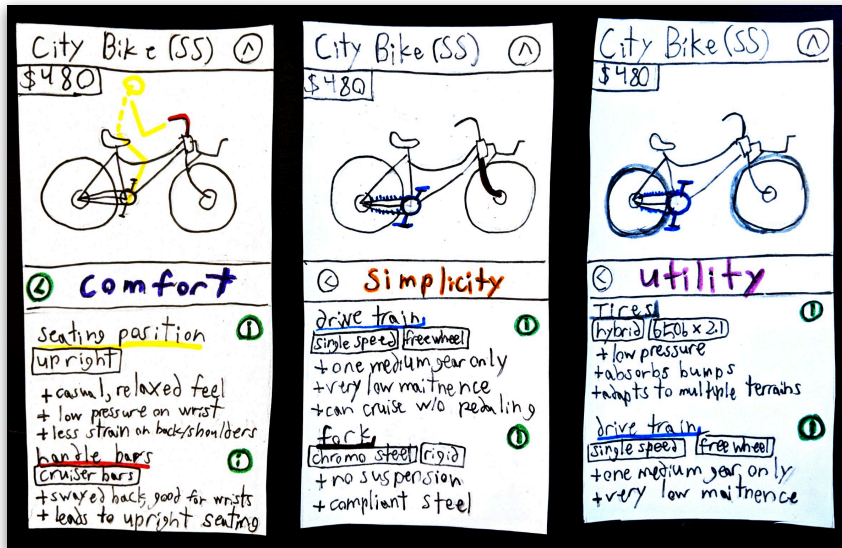 City Bike (SS) ^
$480
< comfort
seating position i
upright
+ casual, relaxed feel
+ low pressure on wrist
+ less strain on back/shoulders
handle bars i
cruiser bars
+ swayed back, good for wrists
+ leads to upright seating
City Bike (SS) ^
$480
< Simplicity
drive train i
single speed freewheel
+ one medium gear only
+ very low maitnence
+ can cruise w/o pedaling
fork i
chromo steel rigid
+ no suspension
+ compliant steel
City Bike (SS) ^
$480
< utility
Tires i
hybrid 650b x 2.1
+ low pressure
+ absorbs bumps
+ adapts to multiple terrains
drive train i
single speed freewheel
+ one medium gear only
+ very low maitnence